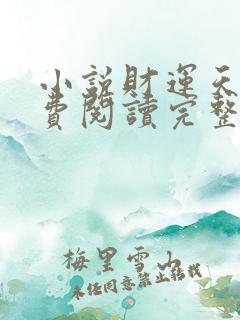 小說財運天
費閱讀完整
梅里雪山
未经同意禁止转载